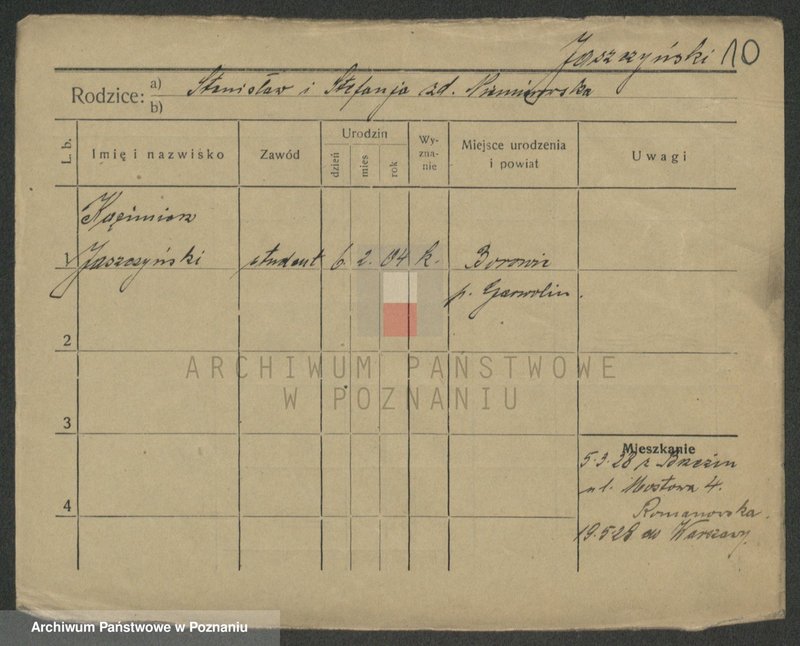 Jaszczyński 10
Rodzice: a) b) Stanisław i Stefanja zd.
L. b. Imię i nazwisko Zawód Urodzin dzień mies rok Wy-zna-nie Miejsce urodzenia i powiat Uwagi
Kazimierz
1 Jaszczyński student 6. 2. 04 k. Borowie
p. Garwolin.
2
ARCHIWUM PAŃSTWOWE
W POZNANIU
3
Mieszkanie
5.3.28 z Brzezin
ul. Mostowa 4.
4
Romanowska.
19.5.28 do Warszawy
Archiwum Państwowe w Poznaniu